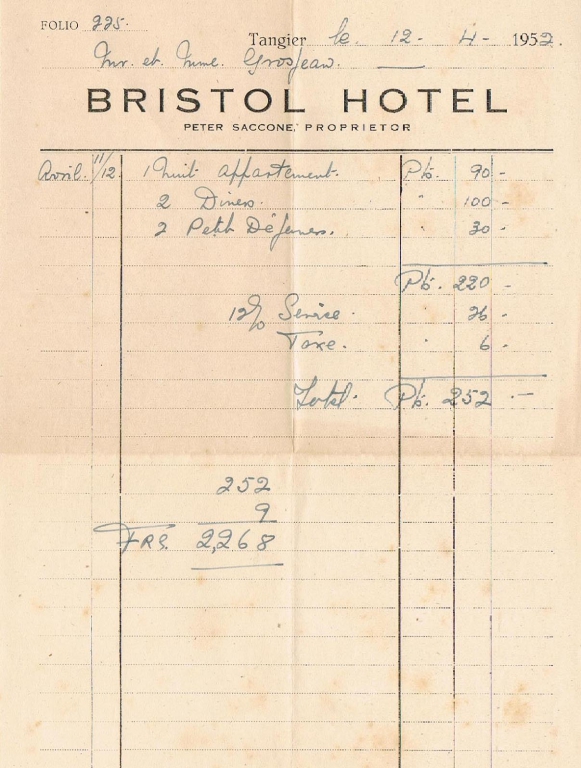 FOLIO 225.
Tangier le 12 - 4 - 1952.
Mr. et Mme. Grosjean.
BRISTOL HOTEL
PETER SACCONE, PROPRIETOR
Avril. 11/12. 1 Nuit appartement. Pts. 90 -
2 Diners. " 100 -
2 Petit Déjeuners. " 30 -
Pts. 220 -
12% Service. " 26 -
Taxe. " 6 -
Total. Pts. 252 . -
252
9
FRS. 2,268